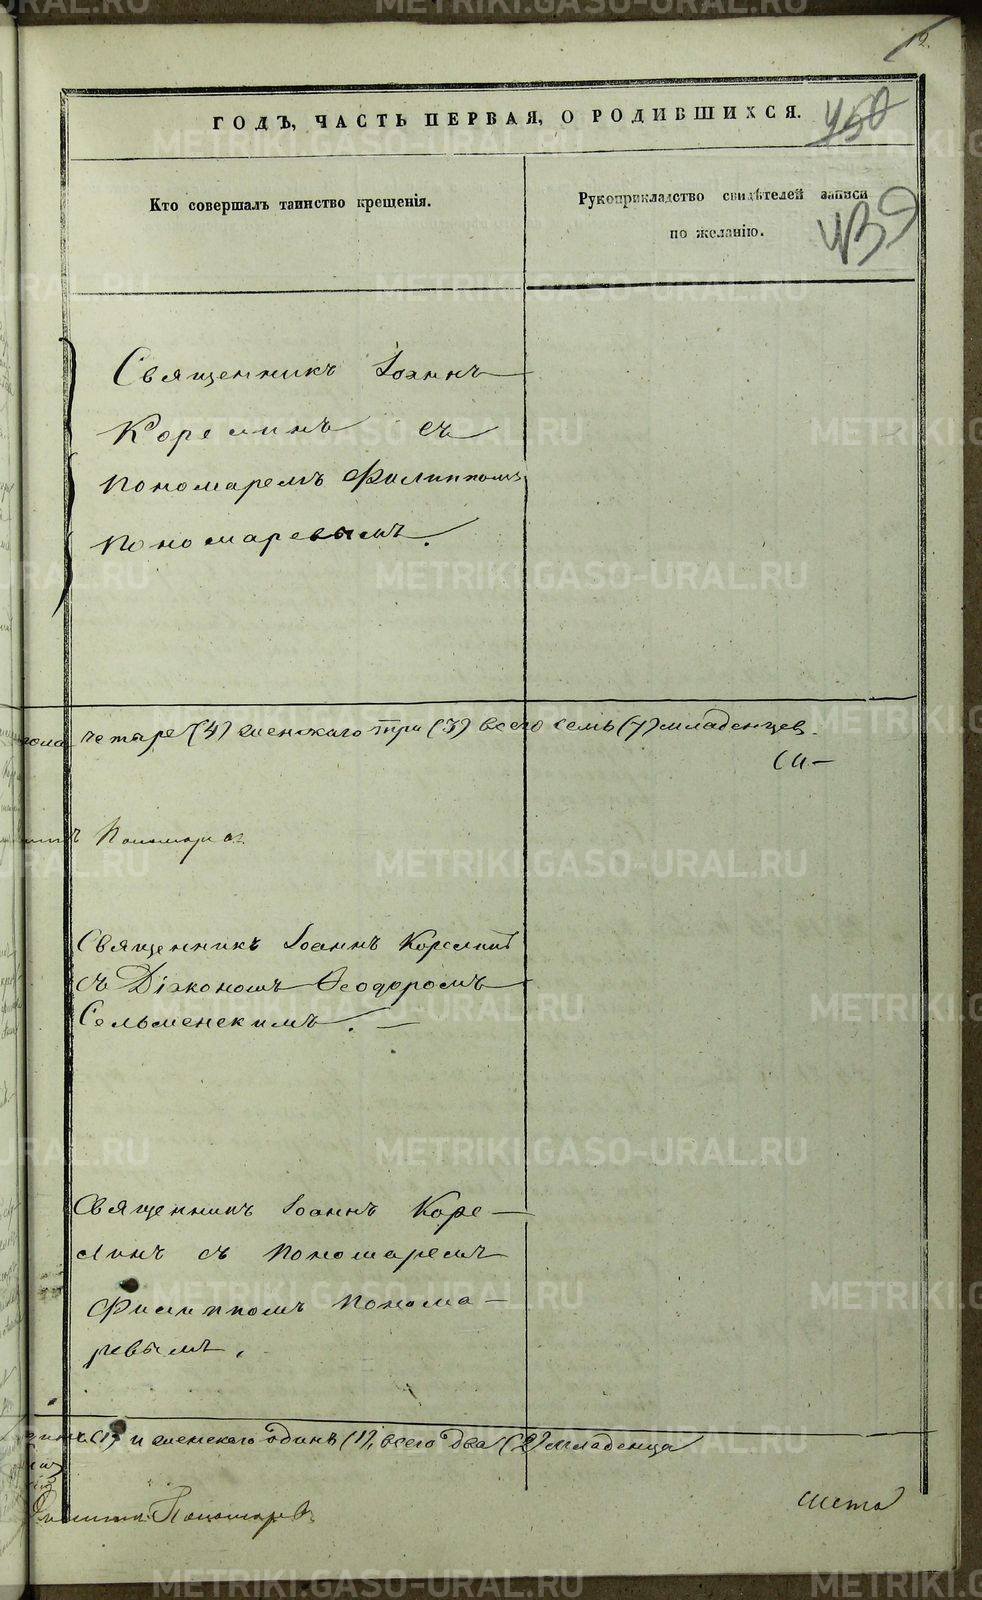 ГОДЪ, ЧАСТЬ ПЕРВАЯ, О РОДИВШИХСЯ.
450
Кто совершалъ таинство крещенія.
Рукоприкладство свидѣтелей записи
по желанію.
439
Священникъ Іоаннъ
Корелинъ съ
пономаремъ Филиппомъ
Пономаревымъ.
четыре (4) женскаго три (3) всего семь (7) младенцев.
Пономаревъ
Священникъ Іоаннъ Корелинъ
съ Діякономъ Ѳеодоромъ
Сельменскимъ.
Священникъ Іоаннъ Коре–
линъ съ Пономаремъ
Филиппомъ Понома–
ревымъ.
(1) и женскаго одинъ (1), всего два (2) младенца
Филиппъ Пономаревъ
METRIKI.GASO-URAL.RU